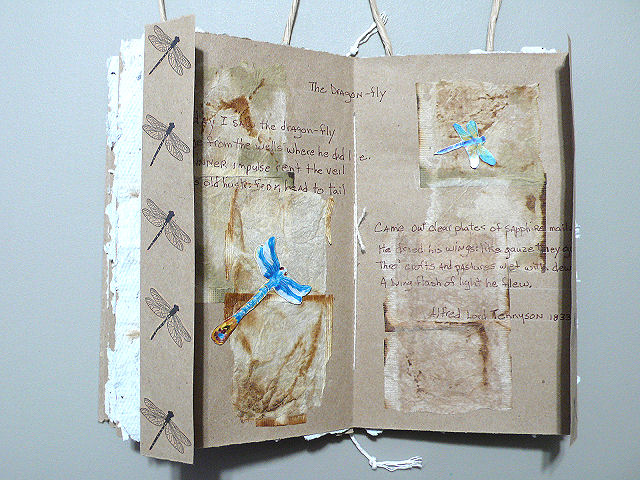 The Dragon-fly
I saw the dragon-fly
from the wells where he did lie.
INNER impulse rent the veil
old husk: from head to tail
Came out clear plates of sapphire mail.
He dried his wings: like gauze they
Thro' crofts and pastures wet with dew
A living flash of light he flew.
Alfred Lord Tennyson 1833